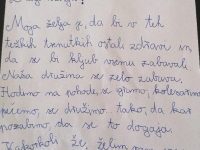 Moja želja je, da bi v teh
težkih trenutkih ostali zdravi in
da se bi kljub vsemu zabavali.
Naša družina se zelo zabava.
Hodimo na pohode, se igramo, kolesarimo,
pečemo, se družimo tako, da kar
pozabimo, da se to dogaja.
Kakorkoli že, želim